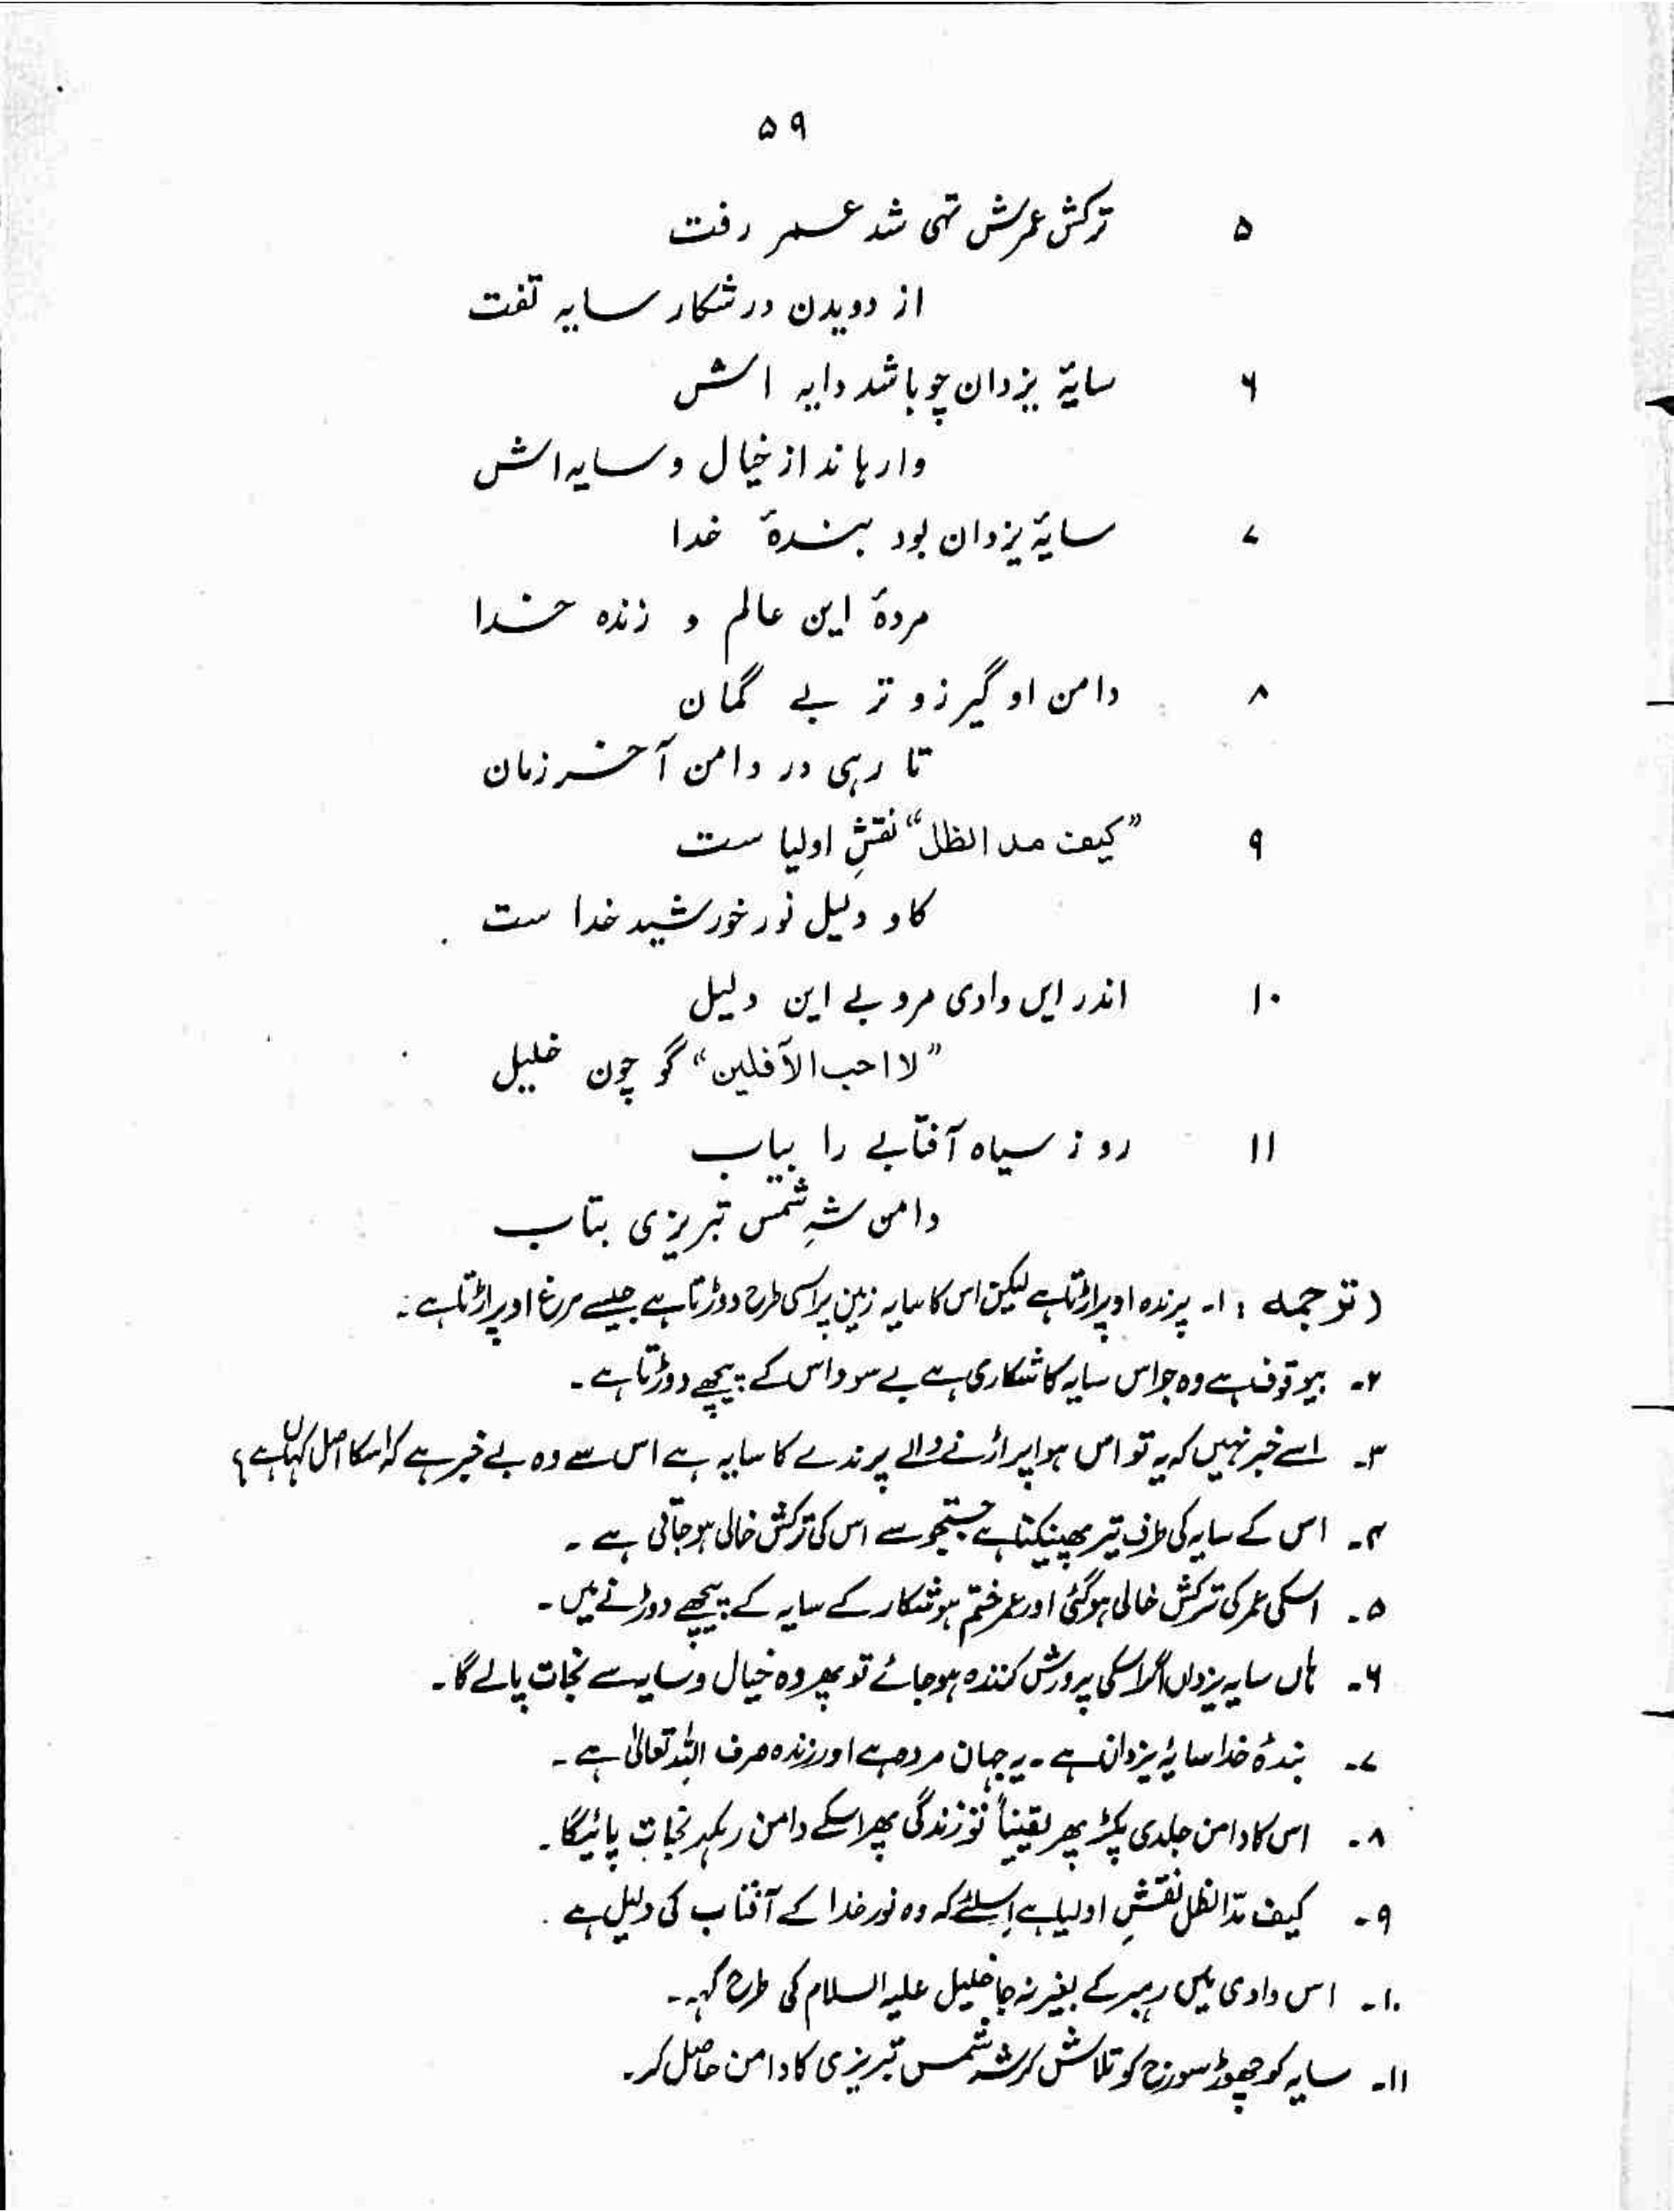 ۵۹
۵ ترکش عمرش تہی شد عمر رفت
از دویدن در شکار سایہ تفت
۶ سایۂ یزدان چو باشد دایہ اش
وارہاند از خیال و سایہ اش
۷ سایۂ یزدان بود بندۂ خدا
مردۂ این عالم و زندہ خدا
۸ دامن او گیر زو تر بے گمان
تا رہی در دامن آخر زمان
۹ ”کیف مد الظل“ نقشِ اولیا ست
کاو دلیل نور خورشید خدا ست
۱۰ اندر ایں وادی مرو بے این دلیل
”لا احب الآفلین“ گو چون خلیل
۱۱ رو ز سیاہ آفتابے را بیاب
دامن شہِ شمس تبریزی بتاب
(ترجمہ : ۱۔ پرندہ اوپر اڑتا ہے لیکن اس کا سایہ زمین پر اسی طرح دوڑتا ہے جیسے مرغ اوپر اڑتا ہے۔
۲۔ بیوقوف ہے وہ جو اس سایہ کا شکاری ہے بے سود اس کے پیچھے دوڑتا ہے۔
۳۔ اسے خبر نہیں کہ یہ تو اس ہوا پر اڑنے والے پرندے کا سایہ ہے اس سے وہ بے خبر ہے کہ اسکا اصل کہاں ہے؟
۴۔ اس کے سایہ کی طرف تیر پھینکتا ہے جستجو سے اس کی ترکش خالی ہو جاتی ہے۔
۵۔ اسکی عمر کی ترکش خالی ہو گئی اور عمر ختم ہو شکار کے سایہ کے پیچھے دوڑنے میں۔
۶۔ ہاں سایہ یزداں اگر اسکی پرورش کنندہ ہو جائے تو پھر وہ خیال و سایہ سے نجات پا لے گا۔
۷۔ بندۂ خدا سایۂ یزدان ہے۔ یہ جہان مردہ ہے اور زندہ صرف اللہ تعالیٰ ہے۔
۸۔ اس کا دامن جلدی پکڑ پھر یقیناً تو زندگی بھر اسکے دامن نجات پائیگا۔
۹۔ کیف مدّ الظل نقشِ اولیا ہے اسلئے کہ وہ نور خدا کے آفتاب کی دلیل ہے۔
۱۰۔ اس وادی میں رہبر کے بغیر نہ جا خلیل علیہ السلام کی طرح کہہ۔
۱۱۔ سایہ کو چھوڑ سورج کو تلاش کر شہ شمس تبریزی کا دامن حاصل کر۔